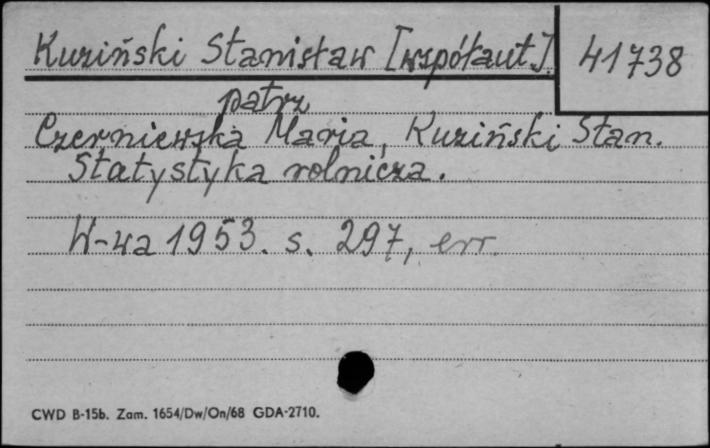 Kuziński Stanisław [współaut.]
41738
patrz
Czerniewska Maria, Kuziński Stan.
Statystyka rolnicza.
W-wa 1953. s. 297, err.
CWD B-15b. Zam. 1654/Dw/On/68 GDA-2710.